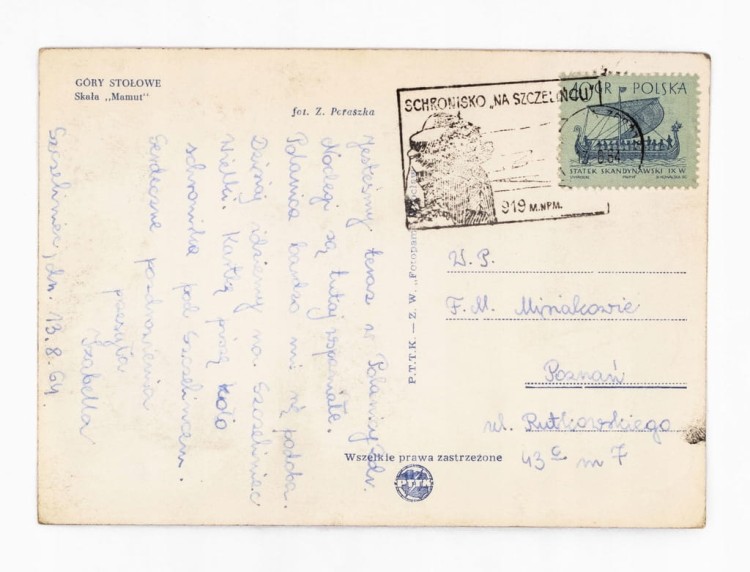 GÓRY STOŁOWE
Skała „Mamut"
fot. Z. Peraszka
Szczeliniec, dn. 13.8.64.
Jesteśmy teraz w Polanicy Zdr.
Noclegi są tutaj wspaniałe.
Polanica bardzo mi się podoba.
Dzisiaj idziemy na Szczeliniec
Wielki. Kartkę piszę koło
schroniska pod Szczelincem.
Serdeczne pozdrowienia
przesyła
Izabella
P.T.T.K. — Z. W. „Fotopam
SCHRONISKO „NA SZCZELIŃCU"
919 M.NPM.
40 GR POLSKA
STATEK SKANDYNAWSKI IX W.
W. P.
F. M. Misiakowie
Poznań
ul. Rutkowskiego
43c m 7
Wszelkie prawa zastrzeżone
PTTK